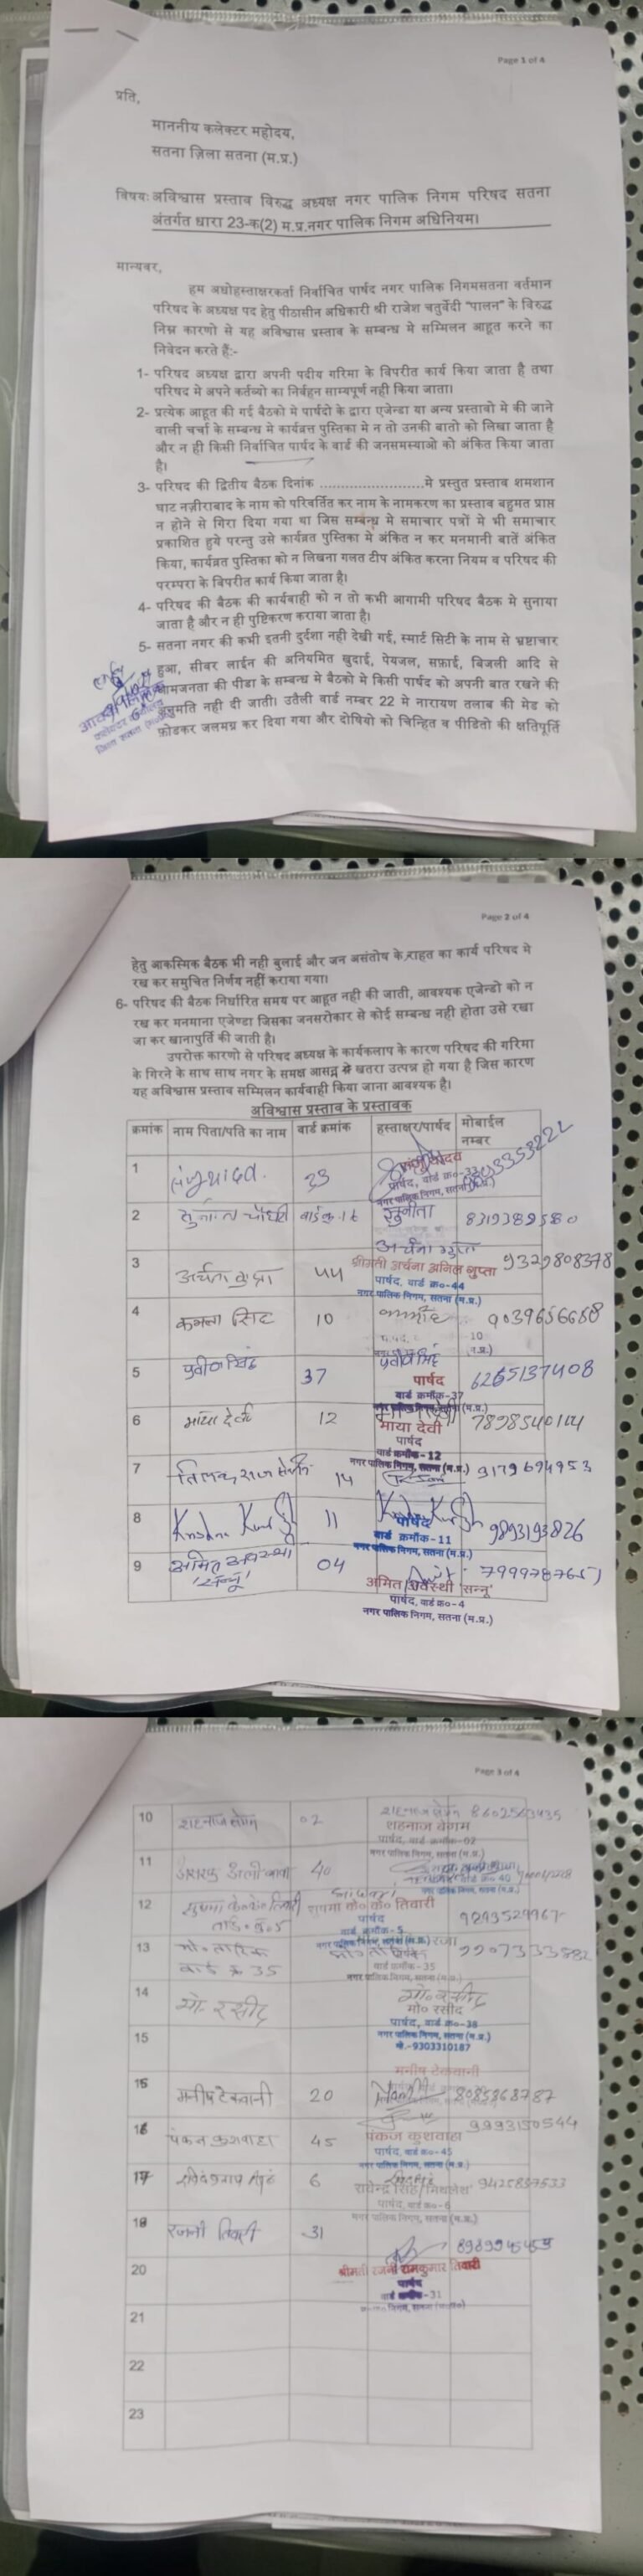 Page 1 of 4
प्रति,
माननीय कलेक्टर महोदय,
सतना ज़िला सतना (म.प्र.)
विषयः अविश्वास प्रस्ताव विरुद्ध अध्यक्ष नगर पालिक निगम परिषद सतना
अंतर्गत धारा 23-क(2) म.प्र.नगर पालिक निगम अधिनियम।
मान्यवर,
हम अधोहस्ताक्षरकर्ता निर्वाचित पार्षद नगर पालिक निगमसतना वर्तमान
परिषद के अध्यक्ष पद हेतु पीठासीन अधिकारी श्री राजेश चतुर्वेदी "पालन" के विरुद्ध
निम्न कारणो से यह अविश्वास प्रस्ताव के सम्बन्ध मे सम्मिलन आहूत करने का
निवेदन करते हैं:-
1- परिषद अध्यक्ष द्वारा अपनी पदीय गरिमा के विपरीत कार्य किया जाता है तथा
परिषद मे अपने कर्तव्यो का निर्वहन साम्यपूर्ण नही किया जाता।
2- प्रत्येक आहूत की गई बैठको मे पार्षदो के द्वारा एजेन्डा या अन्य प्रस्तावो मे की जाने
वाली चर्चा के सम्बन्ध मे कार्यव्रत्त पुस्तिका मे न तो उनकी बातो को लिखा जाता है
और न ही किसी निर्वाचित पार्षद के वार्ड की जनसमस्याओ को अंकित किया जाता
है।
3- परिषद की द्वितीय बैठक दिनांक ........................मे प्रस्तुत प्रस्ताव शमशान
घाट नज़ीराबाद के नाम को परिवर्तित कर नाम के नामकरण का प्रस्ताव बहुमत प्राप्त
न होने से गिरा दिया गया था जिस सम्बंन्ध मे समाचार पत्रों मे भी समाचार
प्रकाशित हुये परन्तु उसे कार्यव्रत पुस्तिका मे अंकित न कर मनमानी बातें अंकित
किया, कार्यव्रत पुस्तिका को न लिखना गलत टीप अंकित करना नियम व परिषद की
परम्परा के विपरीत कार्य किया जाता है।
4- परिषद की बैठक की कार्यवाही को न तो कभी आगामी परिषद बैठक मे सुनाया
जाता है और न ही पुष्टिकरण कराया जाता है।
5- सतना नगर की कभी इतनी दुर्दशा नही देखी गई, स्मार्ट सिटी के नाम से भ्रष्टाचार
हुआ, सीवर लाईन की अनियमित खुदाई, पेयजल, सफ़ाई, बिजली आदि से
आमजनता की पीडा के सम्बन्ध मे बैठको मे किसी पार्षद को अपनी बात रखने की
अनुमति नही दी जाती। उतैली वार्ड नम्बर 22 मे नारायण तलाब की मेड को
फ़ोडकर जलमग्न कर दिया गया और दोषियो को चिन्हित व पीडितो की क्षतिपूर्ति
Page 2 of 4
हेतु आकस्मिक बैठक भी नही बुलाई और जन असंतोष के राहत का कार्य परिषद मे
रख कर समुचित निर्णय नहीं कराया गया।
6- परिषद की बैठक निर्धारित समय पर आहूत नही की जाती, आवश्यक एजेन्डो को न
रख कर मनमाना एजेण्डा जिसका जनसरोकार से कोई सम्बन्ध नही होता उसे रखा
जा कर खानापुर्ति की जाती है।
उपरोक्त कारणो से परिषद अध्यक्ष के कार्यकलाप के कारण परिषद की गरिमा
के गिरने के साथ साथ नगर के समक्ष आसन्न से खतरा उत्पन्न हो गया है जिस कारण
यह अविश्वास प्रस्ताव सम्मिलन कार्यवाही किया जाना आवश्यक है।
अविश्वास प्रस्ताव के प्रस्तावक
क्रमांक नाम पिता/पति का नाम वार्ड क्रमांक हस्ताक्षर/पार्षद मोबाईल नम्बर
1 संजू यादव 33
पार्षद, वार्ड क्र०-33
नगर पालिक निगम, सतना
2 सुनीता चौधरी वार्ड क्र. 16 सुनीता 8319389580
3 अर्चना गुप्ता 44 अर्चना गुप्ता 9329808378
श्रीमती अर्चना अनिल गुप्ता
पार्षद, वार्ड क्र०-44
नगर पालिक निगम, सतना (म.प्र.)
4 कमला सिंह 10 9039656658
5 प्रवीण सिंह 37 6265137408
पार्षद
वार्ड क्रमाँक-37
6 माया देवी 12 7898540144
माया देवी
पार्षद
वार्ड क्रमाँक-12
नगर पालिक निगम, सतना (म.प्र.)
7 तिलक राज सोनी 14 9179694953
8 11 9893193826
पार्षद
वार्ड क्रमाँक-11
नगर पालिक निगम, सतना (म.प्र.)
9 अमित अवस्थी 'सन्नू' 04
अमित अवस्थी 'सन्नू'
पार्षद, वार्ड क्र०-4
नगर पालिक निगम, सतना (म.प्र.)
Page 3 of 4
10 शहनाज बेगम 02 शहनाज बेगम 8602563435
शहनाज बेगम
नगर पालिक निगम, सतना (म.प्र.)
11 40
12 सुषमा के०के० तिवारी
वार्ड क्र. 5
पार्षद
वार्ड क्रमाँक-5
13 मो० तारिक
वार्ड क्र 35
वार्ड क्रमाँक-35
नगर पालिक निगम, सतना (म.प्र.)
14 मो. रसीद मो० रसीद
मो० रसीद
पार्षद, वार्ड क्र०-38
नगर पालिक निगम, सतना (म.प्र.)
मो.-9303310187
15
मनीष टेकवानी
15 मनीष टेकवानी 20 8085868787
16 पंकज कुशवाहा 45 9993150544
पंकज कुशवाहा
पार्षद, वार्ड क्र०-45
नगर पालिक निगम, सतना (म.प्र.)
17 6
पार्षद, वार्ड क्र०-6
नगर पालिक निगम, सतना (म.प्र.)
19 रजनी तिवारी 31
20 श्रीमती रजनी रामकुमार तिवारी
पार्षद
वार्ड क्रमाँक-31
21
22
23